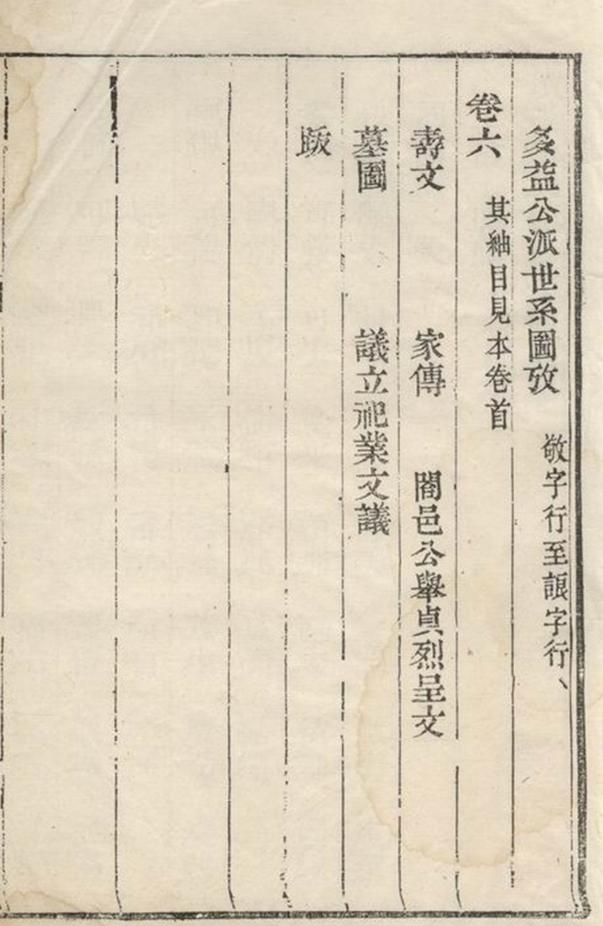 多益公派世系圖攷 敬字行至詪字行、
卷六 其紬目見本卷首
壽文 家傳 閤邑公舉貞烈呈文
墓圖 議立祀業文議
䟦